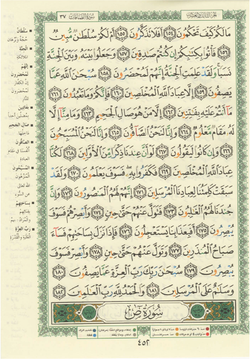 ٣٧
مَا لَكُمْ كَيْفَ تَحْكُمُونَ ١٥٤ أَفَلَا تَذَكَّرُونَ ١٥٥ أَمْ لَكُمْ سُلْطَٰنٌ مُّبِينٌ ١٥٦
فَأْتُوا۟ بِكِتَٰبِكُمْ إِن كُنتُمْ صَٰدِقِينَ ١٥٧ وَجَعَلُوا۟ بَيْنَهُۥ وَبَيْنَ ٱلْجِنَّةِ
نَسَبًا وَلَقَدْ عَلِمَتِ ٱلْجِنَّةُ إِنَّهُمْ لَمُحْضَرُونَ ١٥٨ سُبْحَٰنَ ٱللَّهِ عَمَّا
يَصِفُونَ ١٥٩ إِلَّا عِبَادَ ٱللَّهِ ٱلْمُخْلَصِينَ ١٦٠ فَإِنَّكُمْ وَمَا تَعْبُدُونَ ١٦١
مَآ أَنتُمْ عَلَيْهِ بِفَٰتِنِينَ ١٦٢ إِلَّا مَنْ هُوَ صَالِ ٱلْجَحِيمِ ١٦٣ وَمَا مِنَّآ إِلَّا
لَهُۥ مَقَامٌ مَّعْلُومٌ ١٦٤ وَإِنَّا لَنَحْنُ ٱلصَّآفُّونَ ١٦٥ وَإِنَّا لَنَحْنُ ٱلْمُسَبِّحُونَ
١٦٦ وَإِن كَانُوا۟ لَيَقُولُونَ ١٦٧ لَوْ أَنَّ عِندَنَا ذِكْرًا مِّنَ ٱلْأَوَّلِينَ ١٦٨ لَكُنَّا
عِبَادَ ٱللَّهِ ٱلْمُخْلَصِينَ ١٦٩ فَكَفَرُوا۟ بِهِۦ فَسَوْفَ يَعْلَمُونَ ١٧٠ وَلَقَدْ
سَبَقَتْ كَلِمَتُنَا لِعِبَادِنَا ٱلْمُرْسَلِينَ ١٧١ إِنَّهُمْ لَهُمُ ٱلْمَنصُورُونَ ١٧٢ وَإِنَّ
جُندَنَا لَهُمُ ٱلْغَٰلِبُونَ ١٧٣ فَتَوَلَّ عَنْهُمْ حَتَّىٰ حِينٍ ١٧٤ وَأَبْصِرْهُمْ فَسَوْفَ
يُبْصِرُونَ ١٧٥ أَفَبِعَذَابِنَا يَسْتَعْجِلُونَ ١٧٦ فَإِذَا نَزَلَ بِسَاحَتِهِمْ فَسَآءَ
صَبَاحُ ٱلْمُنذَرِينَ ١٧٧ وَتَوَلَّ عَنْهُمْ حَتَّىٰ حِينٍ ١٧٨ وَأَبْصِرْ فَسَوْفَ
يُبْصِرُونَ ١٧٩ سُبْحَٰنَ رَبِّكَ رَبِّ ٱلْعِزَّةِ عَمَّا يَصِفُونَ ١٨٠
وَسَلَٰمٌ عَلَى ٱلْمُرْسَلِينَ ١٨١ وَٱلْحَمْدُ لِلَّهِ رَبِّ ٱلْعَٰلَمِينَ ١٨٢
سُورَةُ صٓ
٤٥٢